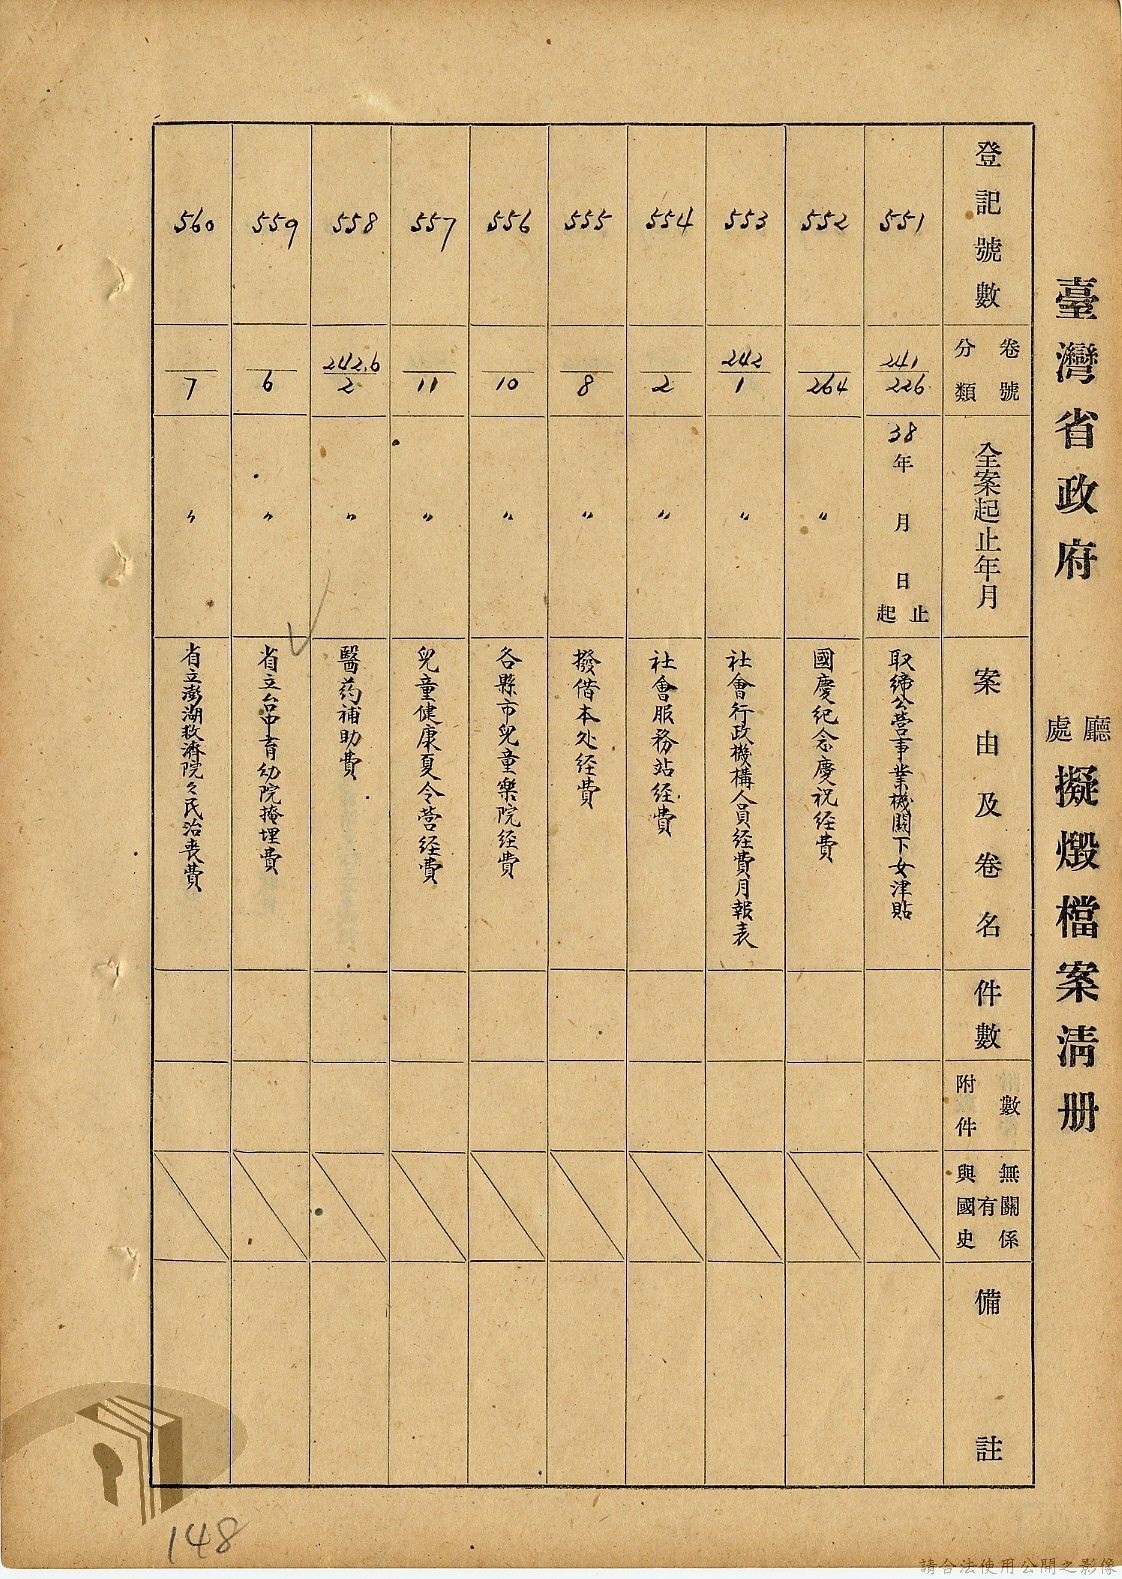 臺灣省政府 廳處擬燬檔案清册
登記號數
分類 卷號
全案起止年月
案由及卷名
件數
附件數
與國史有無關係
備註
551
241/226
38年 月 日起止
取締公營事業機關下女津貼
552
/264
〃
國慶紀念慶祝経費
553
242/1
〃
社會行政機構人員経費月報表
554
/2
〃
社會服務站経費
555
/8
〃
撥借本处経費
556
/10
〃
各縣市兒童樂院経費
557
/11
〃
兒童健康夏令营経費
558
242.6/2
〃
醫药補助費
559
/6
〃
省立台中育幼院掩埋費
560
/7
〃
省立澎湖救濟院々民治喪費
148
請合法使用公開之影像